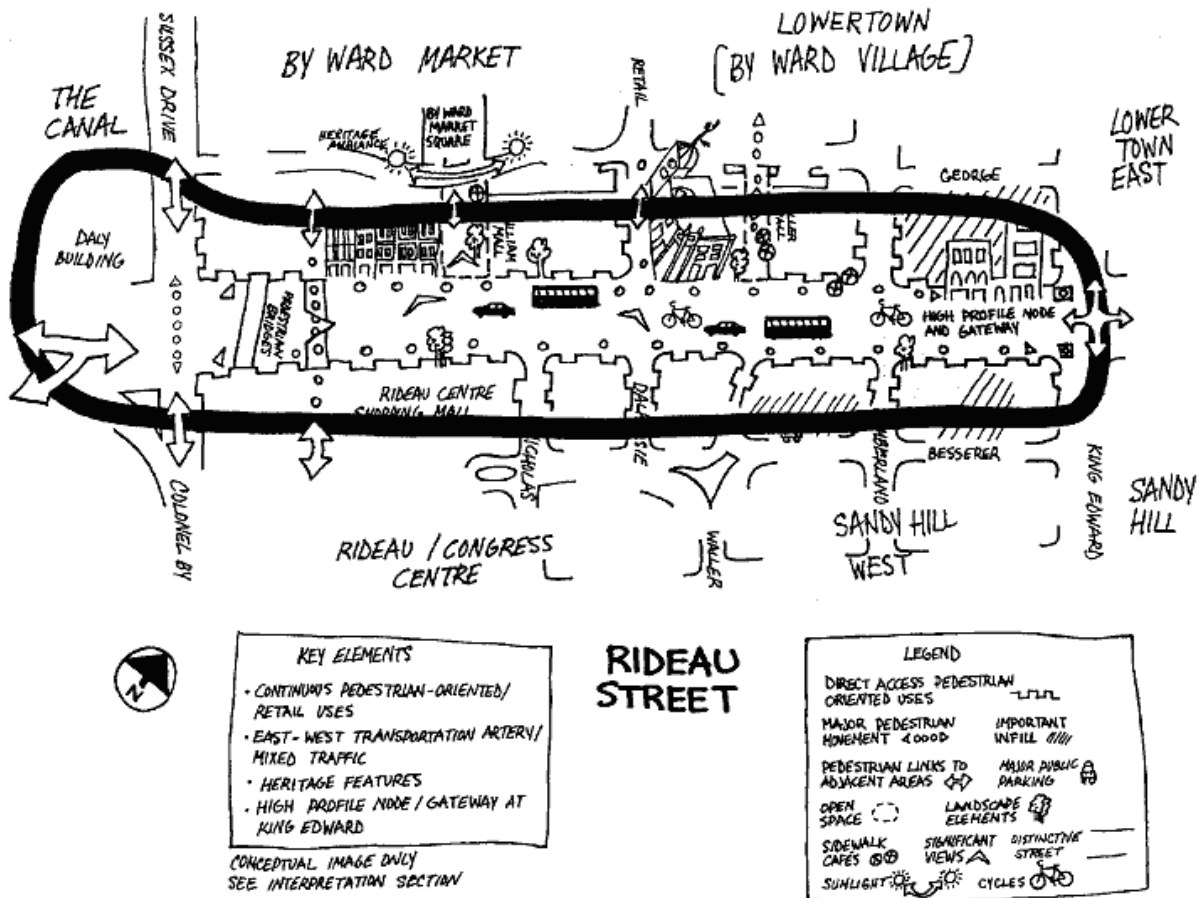 LOWERTOWN
[BY WARD VILLAGE]
BY WARD MARKET
SUSSEX DRIVE
THE
CANAL
RETAIL
BY WARD
MARKET
SQUARE
HERITAGE
AMBIANCE
LOWER
TOWN
EAST
GEORGE
DALY
BUILDING
MALL
PEDESTRIAN
BRIDGES
HIGH PROFILE NODE
AND GATEWAY
RIDEAU CENTRE
SHOPPING MALL
NICHOLAS
BESSERER
KING EDWARD
SANDY
HILL
COLONEL BY
RIDEAU / CONGRESS
CENTRE
WALLER
SANDY HILL
WEST
N
KEY ELEMENTS
• CONTINUOUS PEDESTRIAN-ORIENTED/
RETAIL USES
• EAST-WEST TRANSPORTATION ARTERY/
MIXED TRAFFIC
• HERITAGE FEATURES
• HIGH PROFILE NODE/GATEWAY AT
KING EDWARD
CONCEPTUAL IMAGE ONLY
SEE INTERPRETATION SECTION
RIDEAU
STREET
LEGEND
DIRECT ACCESS PEDESTRIAN
ORIENTED USES
MAJOR PEDESTRIAN
MOVEMENT
IMPORTANT
INFILL
PEDESTRIAN LINKS TO
ADJACENT AREAS
MAJOR PUBLIC
PARKING
OPEN
SPACE
LANDSCAPE
ELEMENTS
SIDEWALK
CAFÉS
SIGNIFICANT
VIEWS
DISTINCTIVE
STREET
SUNLIGHT
CYCLES